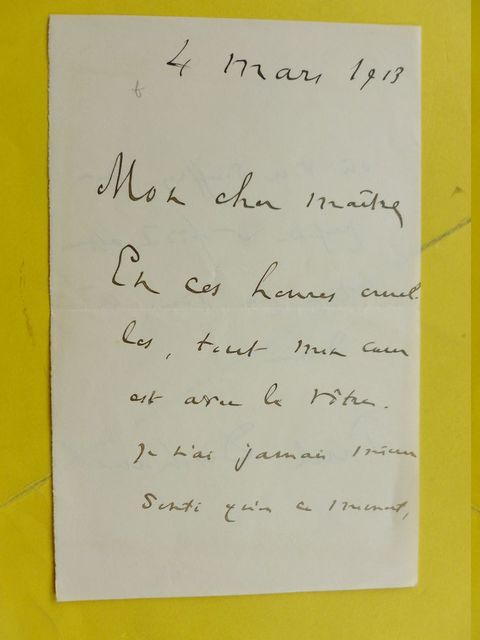 4 mars 1913
Mon cher maître
En ces heures cruel
les, tout mon cœur
est avec le vôtre.
Je n'ai jamais mieux
senti qu'en ce moment,